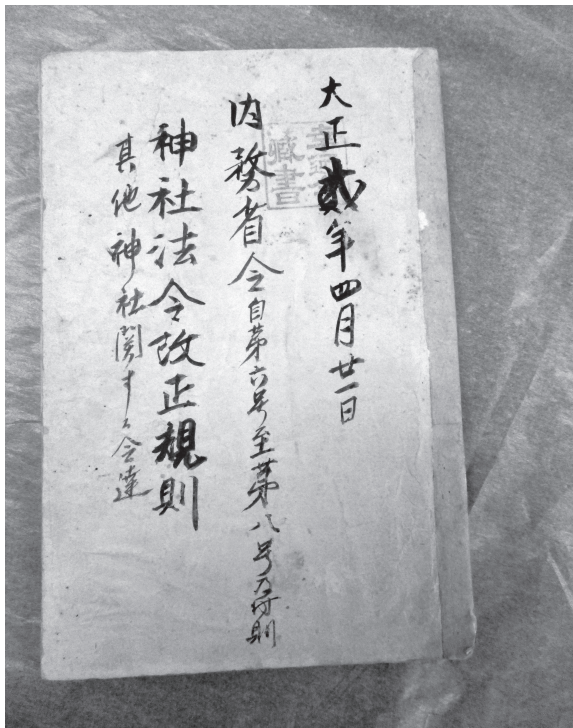 大正貳年四月廿一日
内務省令自第六号至第八号乃附則
神社法令改正規則
其他神社関スル令達
藏書